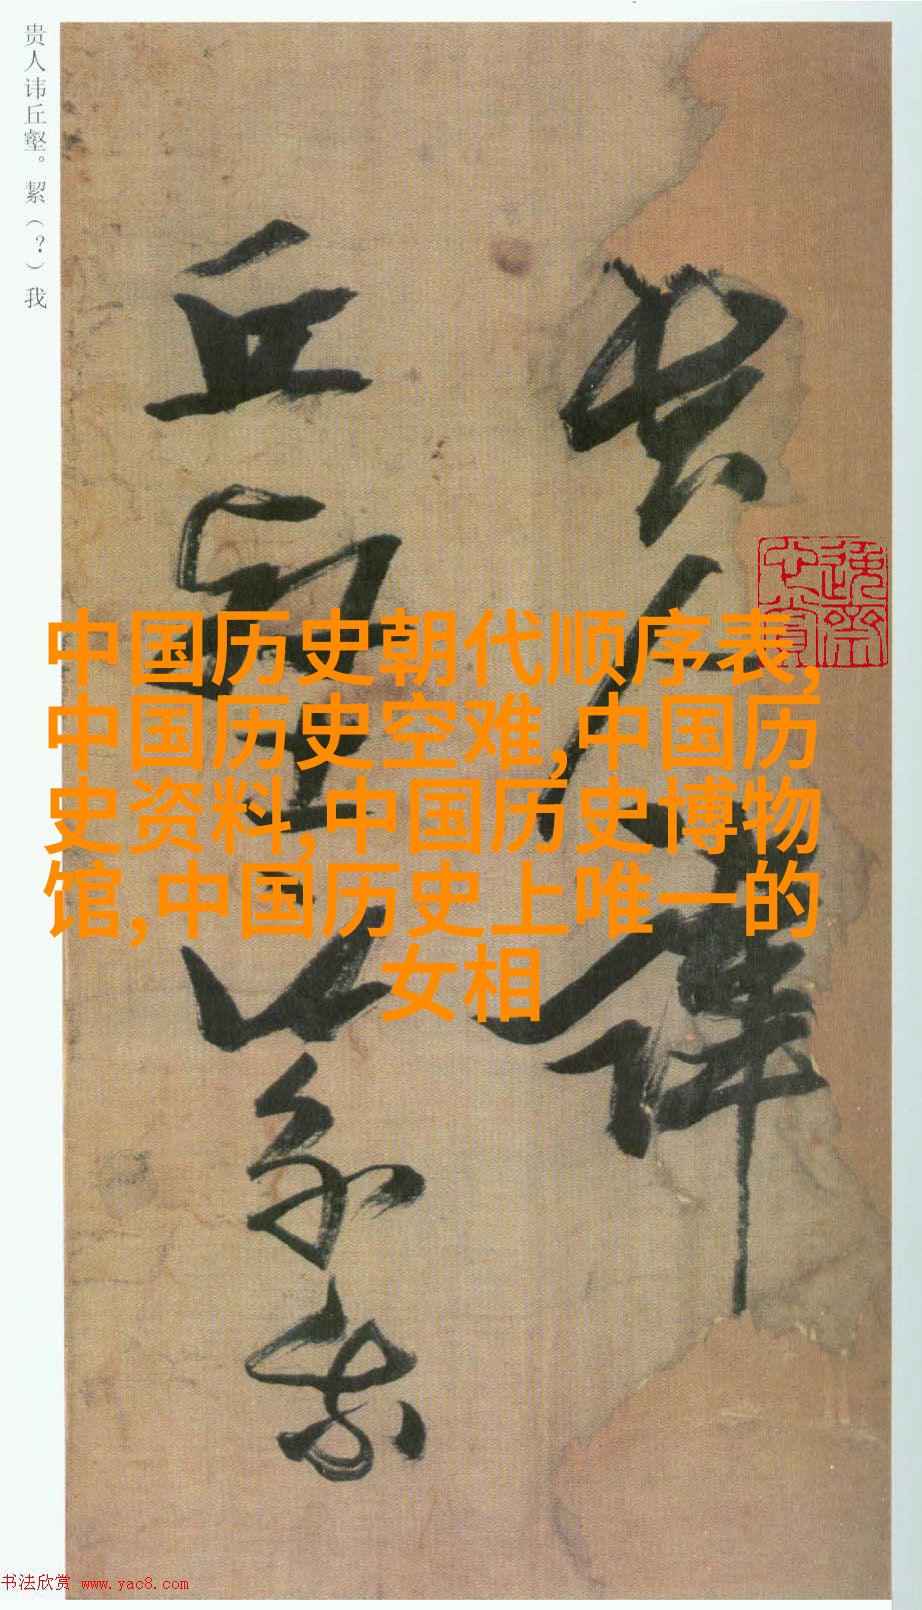 贵人讳丘壑。絜（？）我
贵人讳
丘壑
絜我
中国历史朝代顺序表,
中国历史空难,中国历
史资料,中国历史博物
馆,中国历史上唯一的
女相
书法欣赏 www.yac8.com